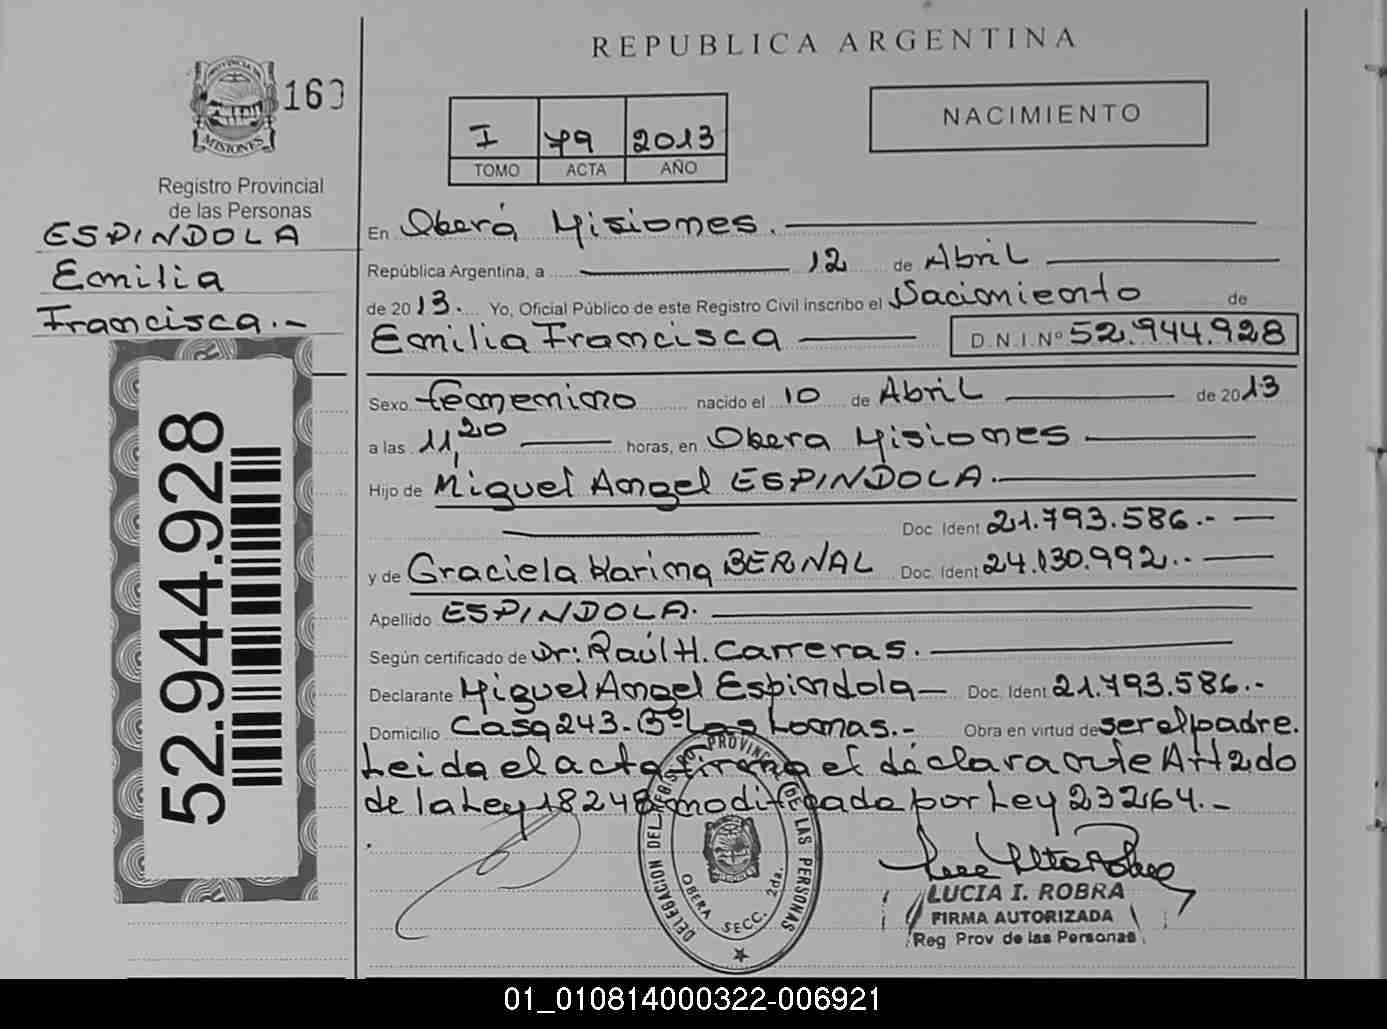 REPUBLICA ARGENTINA
PROVINCIA DE
MISIONES
Registro Provincial
de las Personas
ESPINDOLA
Emilia
Francisca.-
52.944.928
I 79 2013
TOMO ACTA AÑO
NACIMIENTO
En Oberá Misiones.
República Argentina, a 12 de Abril
de 2013. Yo, Oficial Público de este Registro Civil inscribo el Nacimiento de
Emilia Francisca D.N.I. Nº 52.944.928
Sexo femenino nacido el 10 de Abril de 2013
a las 11,20 horas, en Obera Misiones
Hijo de Miguel Angel ESPINDOLA.
Doc. Ident 21.793.586.-
y de Graciela Karina BERNAL Doc. Ident 24.130.992.-
Apellido ESPINDOLA.
Según certificado de Dr: Raúl H. Carreras.
Declarante Miguel Angel Espindola Doc. Ident 21.793.586.-
Domicilio Casa 243- Bº Las Lomas.- Obra en virtud de ser el padre.
Leida el acta firma el declarante Art 2do
de la Ley 18248 modificada por Ley 23264.-
DELEGACION DEL REGISTRO PROVINCIAL DE LAS PERSONAS
OBERA SECC. 2da.
LUCIA I. ROBRA
FIRMA AUTORIZADA
Reg Prov de las Personas
01_010814000322-006921